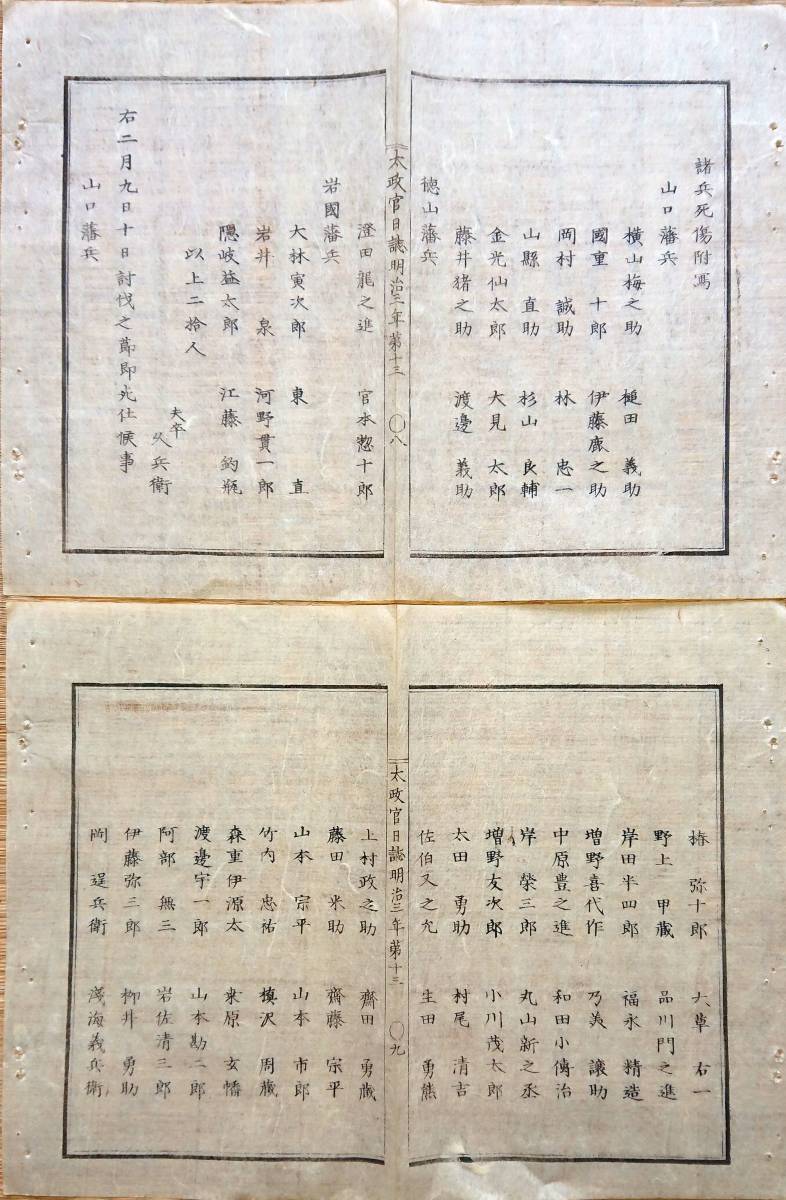 諸兵死傷附写
山口藩兵
横山梅之助 槌田 義助
國重 十郎 伊藤鹿之助
岡村 誠助 林 忠一
山縣 直助 杉山 良輔
金光仙太郎 大見 太郎
藤井猪之助 渡邊 義助
徳山藩兵
太政官日誌明治三年第十三 〇八
澄田龍之進 官本惣十郎
岩國藩兵
大林寅次郎 東 直
岩井 泉 河野貫一郎
隠岐益太郎 江藤 釣瓶
以上二拾人
夫卒
久兵衛
右二月九日十日討伐之節即死仕候事
山口藩兵
椿 弥十郎 大草 右一
野上 甲蔵 品川門之進
岸田半四郎 福永 精造
増野喜代作 乃美 譲助
中原豊之進 和田小傳治
岸 榮三郎 丸山新之丞
増野友次郎 小川茂太郎
太田 勇助 村尾 清吉
佐伯又之允 生田 勇熊
太政官日誌明治三年第十三 〇九
上村政之助 齋田 勇蔵
藤田 米助 齋藤 宗平
山本 宗平 山本 市郎
竹内 忠祐 槙沢 周蔵
森重伊源太 桒原 玄幡
渡邊宇一郎 山本勘二郎
阿部 無三 岩佐清三郎
伊藤弥三郎 柳井 勇助
岡 逞兵衛 淺海義兵衛